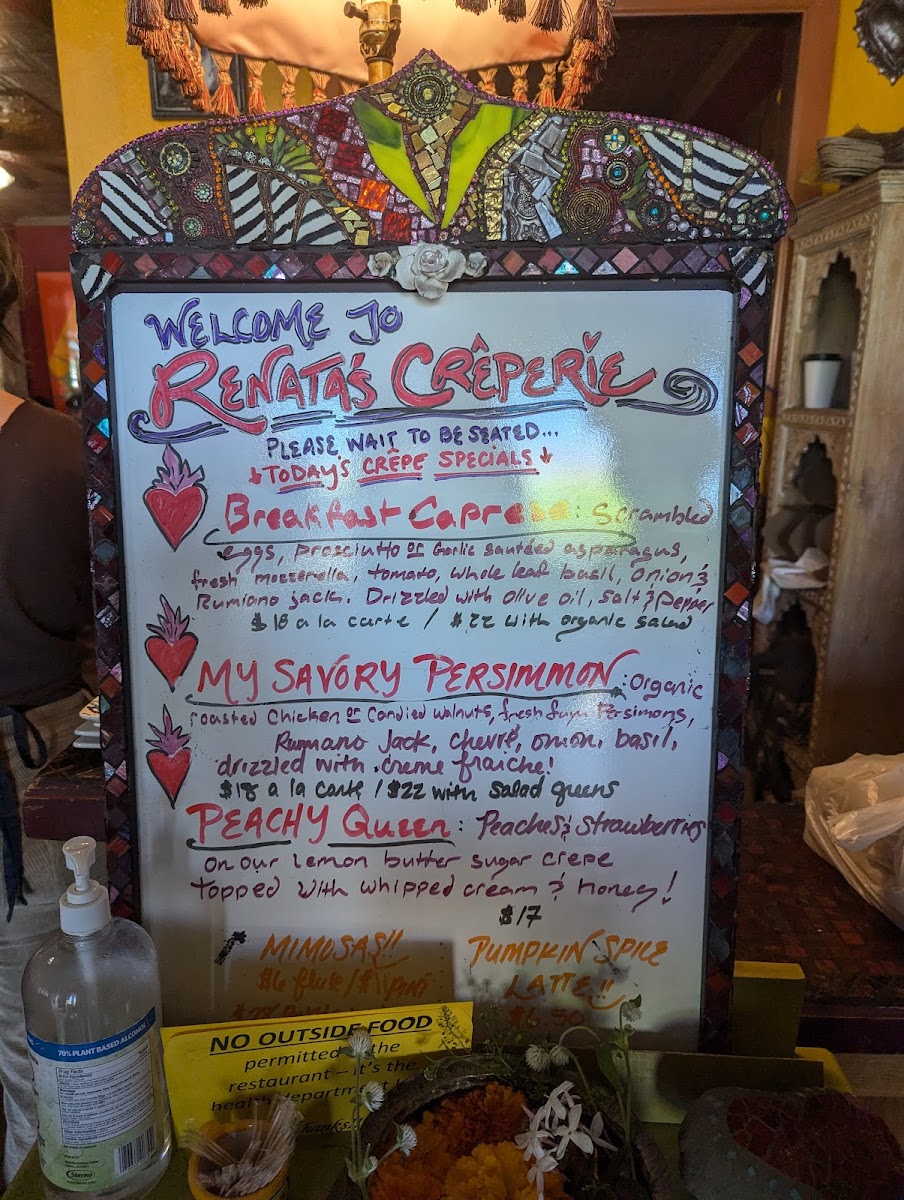 WELCOME TO
RENATA'S CRÊPERIE
PLEASE WAIT TO BE SEATED...
↓TODAY'S CRÊPE SPECIALS↓
Breakfast Caprese: Scrambled
eggs, prosciutto or Garlic sautéed asparagus,
fresh mozzerella, tomato, whole leaf basil, onion &
Rumiano jack. Drizzled with olive oil, salt & pepper
$18 a la carte / $22 with organic salad
MY SAVORY PERSIMMON: Organic
roasted Chicken or Candied walnuts, fresh fuyu Persimons,
Rumiano Jack, chevré, onion, basil,
drizzled with creme fraiche!
$18 a la carte / $22 with salad greens
PEACHY Queen: Peaches & Strawberries
on our lemon butter sugar crepe
topped with whipped cream & honey!
$17
MIMOSAS!!
$6 flute/$11 pint
PUMPKIN SPICE
LATTE!!
NO OUTSIDE FOOD
permitted the
restaurant — it's the
health department
Thanks
70% PLANT BASED ALCOHOL
Drug Facts
Sterno